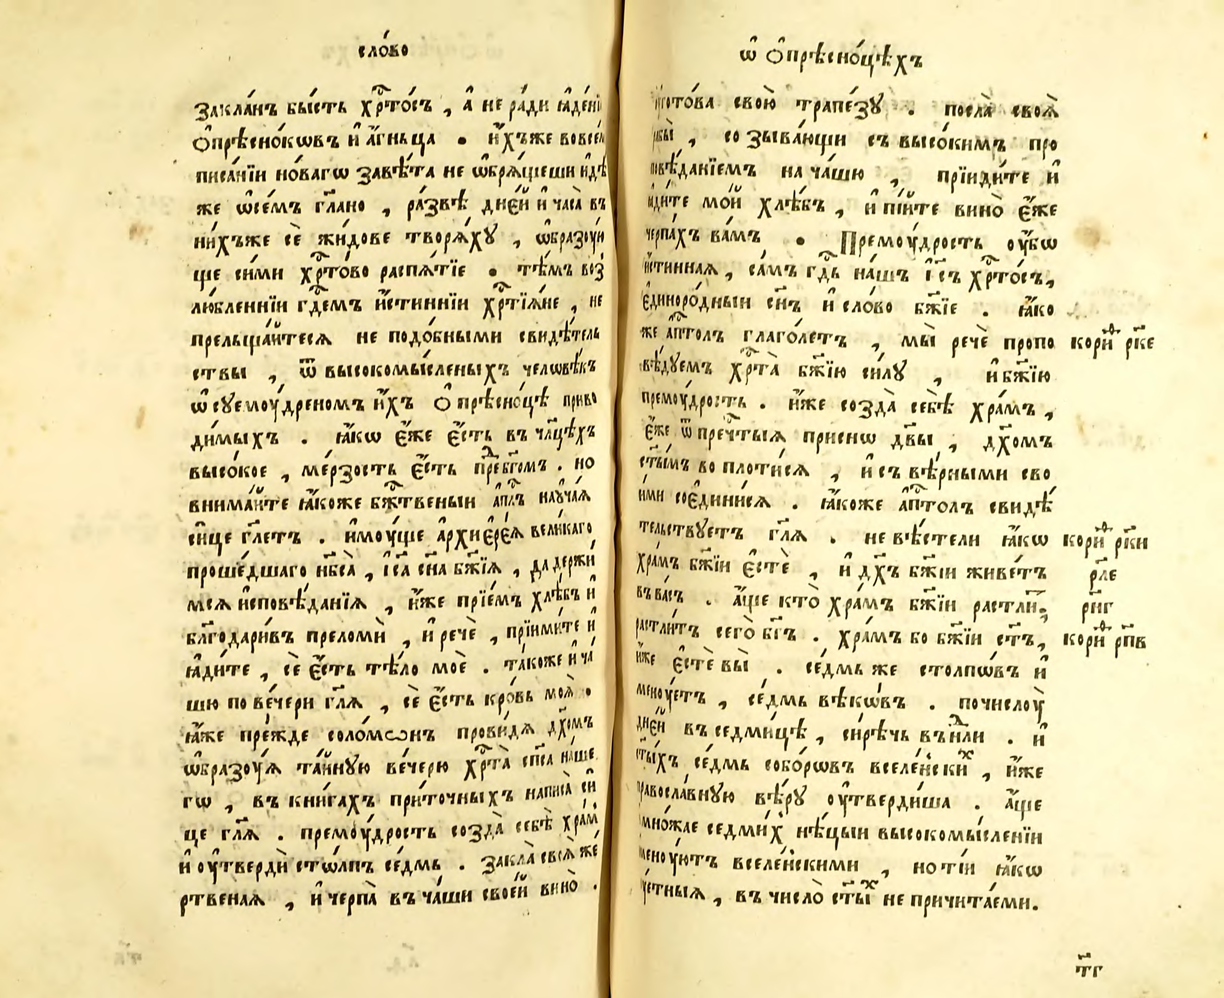 сло́во
закла́нъ бы́сть хрⷭ҇то́съ , а҆ не ра́ди ꙗ҆де́нїѧ
ѻ҆прѣсно́кѡвъ и҆ а҆́гньца . и҆́хъже во всемъ
писа́нїи но́вагѡ завѣ́та не ѡ҆брѧ́щеши и҆дѣ́
же ѡ҆ се́мъ гл҃ано , ра́звѣ дне́й и҆ часа̀ въ
ни́хъже сѐ жи́дове творѧ́хꙋ , ѡ҆бразꙋ́ю
ще си́ми хрⷭ҇то́во распѧ́тїе . тѣ́мъ воз̾
лю́бленнїи гдⷭ҇емъ и҆́стиннїи хрⷭ҇тїѧ́не , не
прельща́йтесѧ не подо́бными свидѣ́тель
ствы , ѿ высокомы́сленыхъ человѣ́къ
ѡ҆ сꙋемоу́дреномъ и҆́хъ ѻ҆прѣсно́цѣ приво
ди́мыхъ . ꙗ҆́кѡ є҆́же є҆́сть въ чл҃цѣхъ
высо́кое , ме́рзость є҆́сть преⷣ бг҃омъ . но
внима́йте ꙗ҆́коже бж҃твеныи а҆пⷭ҇лъ наꙋча́ѧ
си́це гл҃етъ . и҆моу́ще а҆рхїєре́ѧ вели́каго
проше́дшаго нб҃са̀ , і҆с҃а сн҃а бж҃їѧ , да держи́
мсѧ и҆сповѣ́данїѧ , и҆́же прїе́мъ хлѣ́бъ и҆
благодари́въ преломѝ , и҆ речѐ , прїими́те и҆
ꙗ҆ди́те , сѐ є҆́сть тѣ́ло моѐ . та́коже и҆ ча́
шю по ве́чери гл҃ѧ , сѐ є҆́сть кро́вь моѧ̀ .
ꙗ҆́же пре́жде соломо́нъ прови́дѧ дх҃омъ
ѡ҆бразоу́ѧ та́йнꙋю ве́черю хрⷭ҇та̀ сп҃са на́ше
гѡ , въ кни́гахъ при́точныхъ написа̀ си́
це гл҃ѧ . премоу́дрость созда̀ себѣ̀ хра́мъ
и҆ оу҆твердѝ стѡлпъ се́дмь . закла̀ своѧ̀ же́
ртвенаѧ , и҆ черпа̀ въ ча́ши свое́й вино̀ .
ѡ҆ ѻ҆прѣсно́цѣхъ
оу҆гото́ва свою̀ трапе́зꙋ . посла̀ своѧ̀
рабы̀ , созыва́ющи съ высо́кимъ про
повѣ́данїемъ на ча́шю , прїиди́те и҆
ꙗ҆ди́те мо́й хлѣ́бъ , и҆ пі́йте вино̀ є҆́же
черпа́хъ ва́мъ . Премоу́дрость оу҆́бѡ
и҆́стиннаѧ , са́мъ гдⷭ҇ь на́шъ і҆с҃ъ хрⷭ҇то́съ,
є҆диноро́дныи сн҃ъ и҆ сло́во бж҃їе . ꙗ҆́ко
же а҆пⷭ҇толъ глаго́летъ , мы̀ речѐ пропо
вѣ́дꙋемъ хрⷭ҇та̀ бж҃їю си́лꙋ , и҆ бж҃їю
премоу́дрость . и҆́же созда̀ себѣ̀ хра́мъ ,
є҆́же ѿ пречⷭ҇тыѧ при́снѡ дв҃ы , дх҃омъ
ст҃ы́мъ воплоти́сѧ , и҆ съ вѣ́рными сво
и́ми соє҆дини́сѧ . ꙗ҆́коже а҆пⷭ҇толъ свидѣ́
тельствꙋетъ гл҃ѧ . не вѣ́стели ꙗ҆́кѡ
хра́мъ бж҃їи є҆стѐ , и҆ дх҃ъ бж҃їи живе́тъ
въ ва́съ . а҆́ще кто̀ хра́мъ бж҃їи растли́тъ
растли́тъ сего̀ бг҃ъ . хра́мъ бо бж҃їи ст҃ъ,
и҆́же є҆стѐ вы̀ . се́дмь же столпѡ́въ и҆
меноу́етъ , се́дмь вѣ́кѡвъ . по числоу̀
дне́й въ седми́цѣ , си́рѣчь въ нⷣли . и҆
ст҃ыхъ се́дмь собо́рѡвъ вселе́нскиⷯ , и҆́же
правосла́внꙋю вѣ́рꙋ оу҆тверди́ша . а҆́ще
мно́жае седми́хъ нѣ́цыи высокомы́сленїи
и҆меноу́ютъ вселе́нскими , но ті́и ꙗ҆́кѡ
въ число̀ ст҃ыⷯ не причита́еми.
кориⷩ҇ рк҃е
кориⷩ҇ рк҃и
рл҃е
рн҃г
кориⷩ҇ рп҃в
т҃г